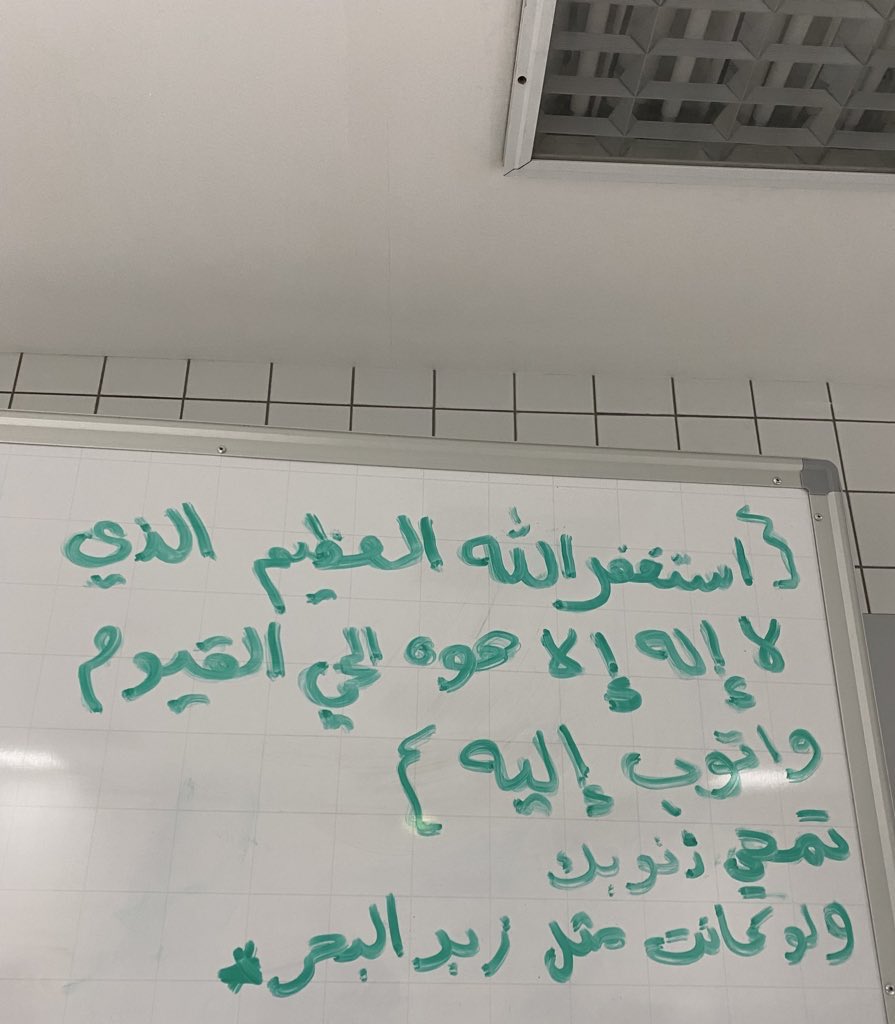 {استغفر الله العظيم الذي
لا إله إلا هوه الحي القيوم
واتوب إليه }
تمحي ذنوبك
ولو كانت مثل زبد البحر *